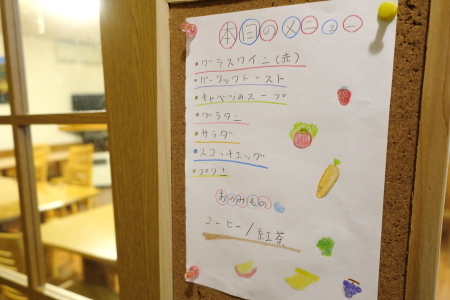 本日のメニュー
・グラスワイン(赤)
・ガーリックトースト
・キャベツのスープ
・グラタン
・サラダ
・スコッチエッグ
・プリン
おのみもの
コーヒー/紅茶